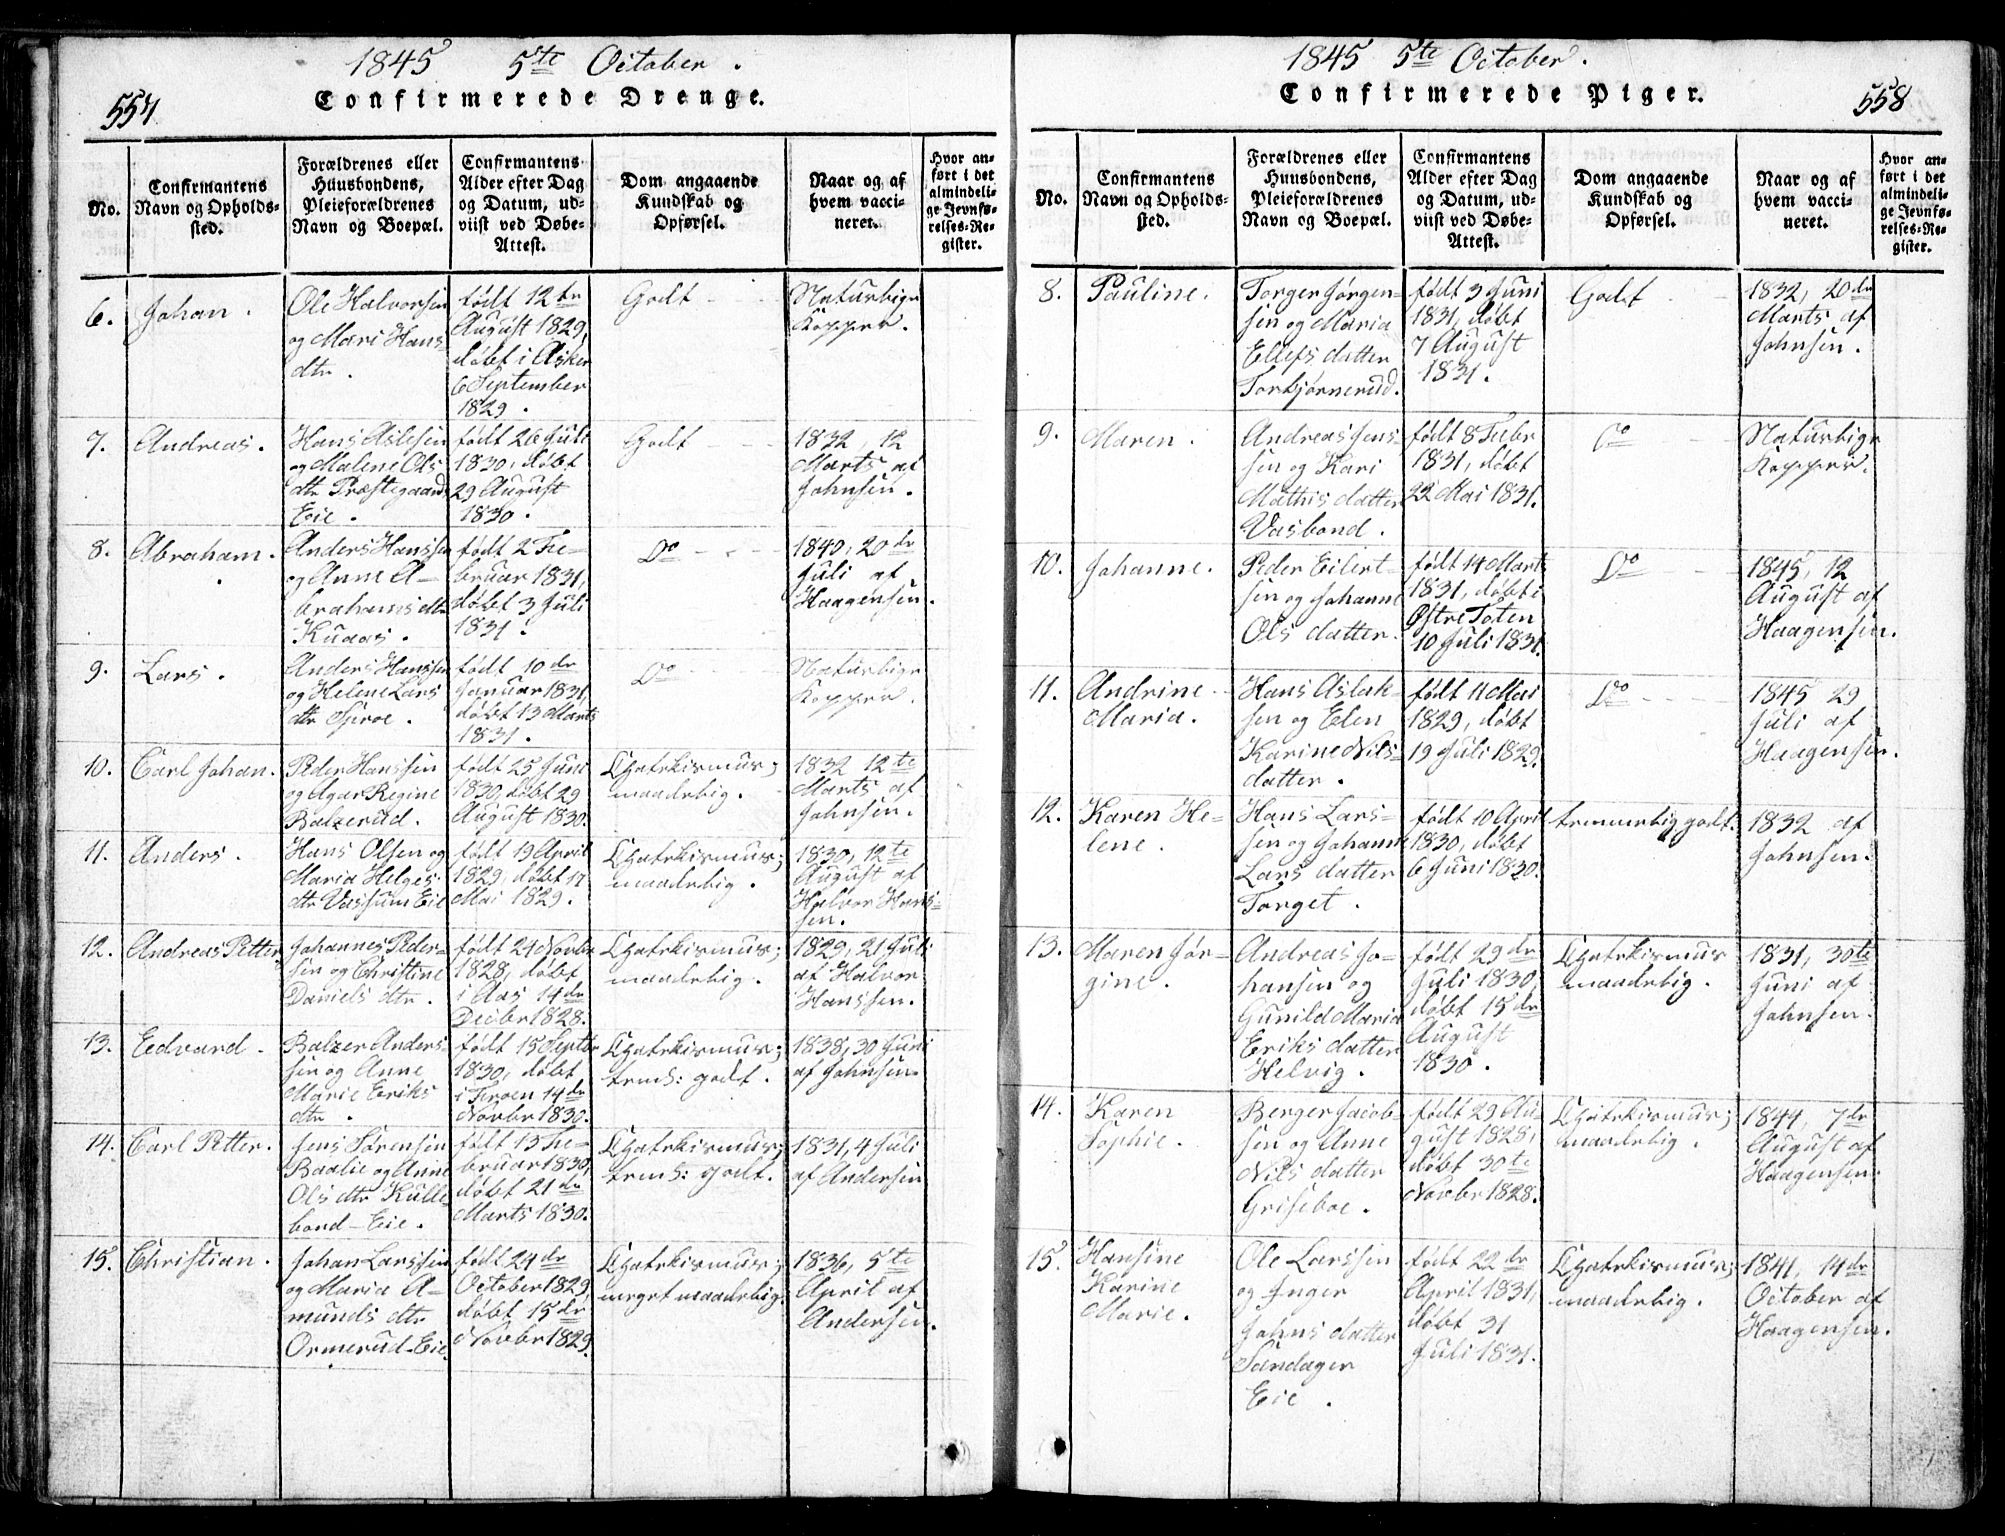 1845 5te October.
554
Confirmerede Drenge.
No.
Confirmantens
Navn og Opholds-
sted.
Forældrenes eller
Huusbondens,
Pleieforældrenes
Navn og Boepæl.
Confirmantens
Alder efter Dag
og Datum, ud-
viist ved Døbe-
Attest.
Dom angaaende
Kundskab og
Opførsel.
Naar og af
hvem vacci-
neret.
Hvor an-
ført i det
almindeli-
ge Jevnfø-
relses-Re-
gister.
6.
Johan.
Ole Halvorsen
og Mari Hans
dtr.
født 12te
August 1829,
døbt i Asker
6 September
1829.
Godt
Naturlige
Kopper.
7.
Andreas.
Hans Aslesen
og Malene Ols
dtr Præstegaard
Eie.
født 26 Juli
1830, døbt
29 August
1830.
Godt
1832 12
Marts af
Johnsen.
8.
Abraham.
Anders Hanssen
og Anne A-
brahams dtr
Kuaas.
født 2 Fe-
bruar 1831,
døbt 3 Juli
1831.
Do
1840, 20de
Juli af
Haagensen.
9.
Lars.
Anders Hanssen
og Helene Lars
dtr Sproe.
født 10de
Januar 1831,
døbt 13 Marts
1831.
Do
Naturlige
Kopper.
10.
Carl Johan.
Peder Hanssen
og Agar Regine
Balzerud.
født 25 Juni
1830, døbt 29
August 1830.
Chatekismus;
maadelig.
1832 12te
Marts af
Johnsen.
11.
Anders.
Hans Olsen og
Maria Helges
dtr Vassum Eie
født 19 April
1829, døbt 17
Mai 1829.
Chatekismus;
maadelig.
1830, 12te
August af
Halvor Hans-
sen.
12.
Andreas Petter
Johannes Peder-
sen og Christine
Daniels dtr.
født 24 Novbr
1828, døbt
i Aas 14de
Decbr 1828.
Chatekismus;
maadelig.
1829, 21 Juli
af Halvor
Hanssen.
13.
Eedvard.
Balzer Anders-
sen og Anne
Marie Eriks
dtr.
født 15 Septbr
1830, døbt
14de
Novbr 1830.
Chatekismus;
godt.
1838, 30 Juni
af Johnsen.
14.
Carl Petter.
Jens Sørensen
Baalie og Anne
Ols dtr Kulle-
bond-Eie.
født 13 Fe-
bruar 1830,
døbt 21de
Marts 1830.
Chatekismus;
godt.
1831, 4 Juli
af Andersen
15.
Christian.
Johan Larssen
og Marie A-
munds dtr
Ormerud-Eie.
født 24de
October 1829,
døbt 15de
Novbr 1829.
Chatekismus;
meget maadelig.
1836, 5te
April af
Andersen.
1845 5te October.
Confirmerede Piger.
558
No.
Confirmantens
Navn og Opholds-
sted.
Forældrenes eller
Huusbondens,
Pleieforældrenes
Navn og Boepæl.
Confirmantens
Alder efter Dag
og Datum, ud-
viist ved Døbe-
Attest.
Dom angaaende
Kundskab og
Opførsel.
Naar og af
hvem vacci-
neret.
Hvor an-
ført i det
almindeli-
ge Jevnfø-
relses-Re-
gister.
8.
Pauline.
Torger Jørgen-
sen og Maria
Ellefs datter
Torkjørnerud.
født 3 Juni
1831, døbt
7 August
1831.
Godt
1832, 20de
Marts af
Johnsen.
9.
Maren.
Andreas Jens-
sen og Kari
Mathis datter
Vasbond.
født 8 Febr
1831, døbt
22 Mai 1831.
Do
Naturlige
Kopper.
10.
Johanne.
Peder Eilert-
sen og Johanne
Ols datter.
født 14 Marts
1831, døbt i
Østre Toten
10 Juli 1831.
Do
1845, 12
August af
Haagensen.
11.
Andrine
Maria.
Hans Aslak-
sen og Elen
Karine Nils-
datter.
født 11 Mai
1829, døbt
19 Juli 1829.
Do
1845 29
Juli af
Haagensen.
12.
Karen He-
lene.
Hans Lars-
sen og Johanne
Lars datter
Torget.
født 10 April
1830, døbt
6 Juni 1830.
temmelig godt.
1832 af
Johnsen.
13.
Maren Jør-
gine.
Andreas Jo-
hansen og
Gunild Maria
Eriks datter
Helvig.
født 29de
Juli 1830,
døbt 15de
August
1830.
Chatekismus
maadelig.
1831, 30te
Juni af
Johnsen.
14.
Karen
Sophie.
Berger Jacob-
sen og Anne
Nils datter
Griseboe.
født 29 Au-
gust 1828,
døbt 30te
Novbr 1828.
Chatekismus;
maadelig.
1844, 7de
August af
Haagensen.
15.
Hansine
Karine
Marie.
Ole Larssen
og Inger
Johns datter
Søndager
Eie.
født 22de
April 1831,
døbt 31
Juli 1831.
Chatekismus;
maadelig.
1841, 14de
October af
Haagensen.